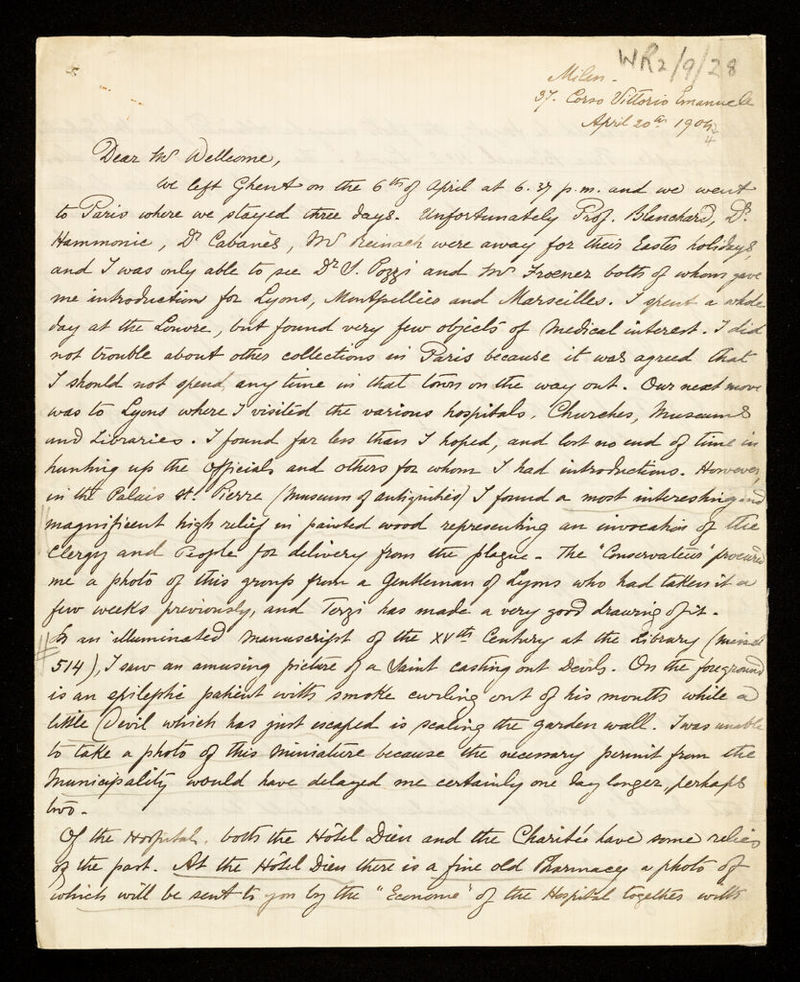 WR2/9/28
Milan.
37. Corso Vittorio Emanuele
April 20th 190
Dear Mr Wellcome,
We left Ghent on the 6th of April at 6.37 p.m. and we went
to Paris where we stayed three days. Unfortunately Prof. Blanchard, Dr.
Hammonic, Dr Cabanès, Mr Reinach were away for their Easter holidays,
and I was only able to see Dr S. Pozzi and Mr Froener both of whom gave
me introduction for Lyons, Montpellier and Marseilles. I spent a whole
day at the Louvre, but found very few objects of medical interest. I did
not trouble about other collections in Paris because it was agreed that
I should not spend any time in that town on the way out. Our next move
was to Lyons where I visited the various hospitals, Churches, Museums
and Libraries. I found far less than I hoped, and lost no end of time in
hunting up the Officials and others for whom I had introductions. However,
in the Palais St. Pierre (Museum of antiquities) I found a most interesting and
magnificent high relief in painted wood representing an invocation of the
Clergy and People for delivery from the plague - The "Conservateur" procured
me a photo of this group from a Gentleman of Lyons who had taken it a
few weeks previously, and Terzi has made a very good drawing of it.
In an illuminated manuscript of the XVth Century at the Library (
514), I saw an amusing picture of a Saint casting out Devils. On the foreground
is an epileptic patient with smoke curling out of his mouth while a
little Devil which has just escaped is scaling the garden wall. I was unable
to take a photo of this miniature because the necessary permit from the
Municipality would have delayed me certainly one day longer, perhaps
two.
Of the Hospitals, both the Hôtel Dieu and the Charité have some relics
of the past. At the Hôtel Dieu there is a fine old Pharmacy a photo of
which will be sent to you by the "Econome" of the Hospital together with